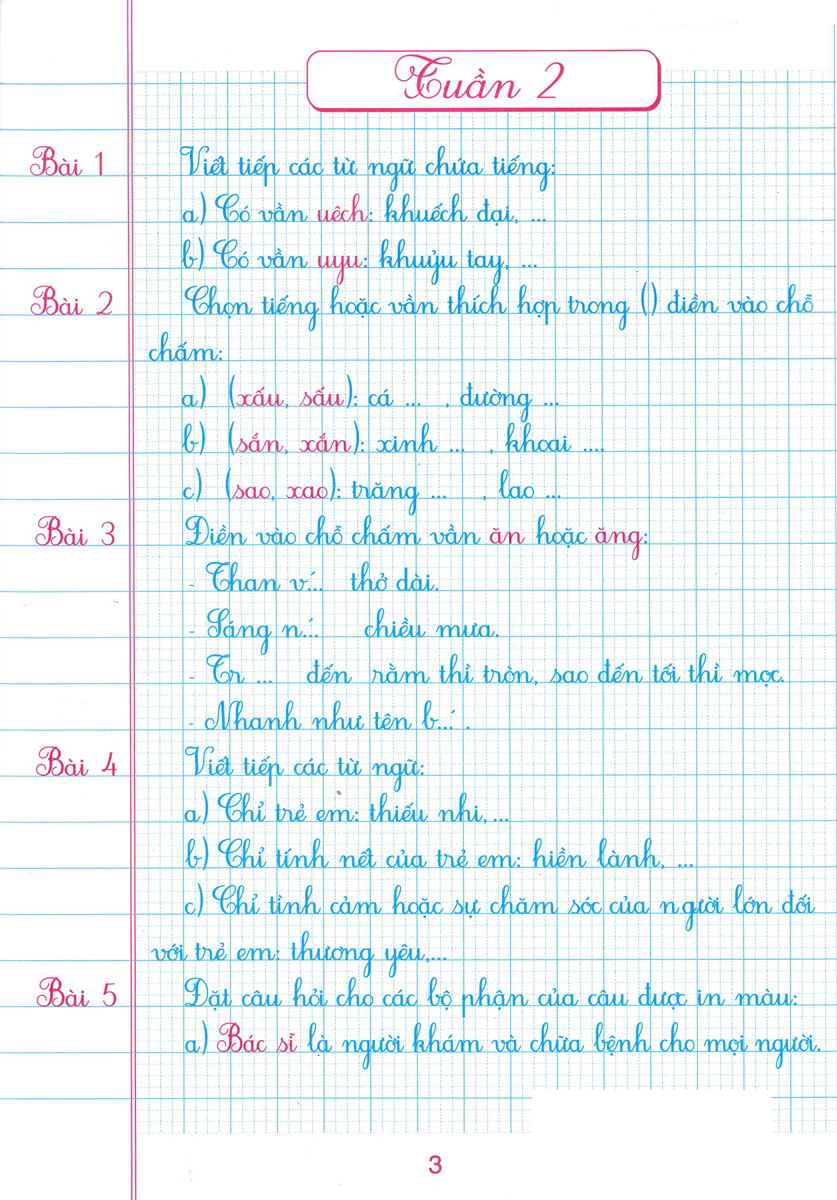 Tuần 2
Bài 1 Viết tiếp các từ ngữ chứa tiếng:
a) Có vần uêch: khuếch đại, ...
b) Có vần uyu: khuỷu tay, ...
Bài 2 Chọn tiếng hoặc vần thích hợp trong () điền vào chỗ
chấm:
a) (xấu, sấu): cá ... , đường ...
b) (sắn, xắn): xinh ... , khoai ....
c) (sao, xao): trăng ... , lao ...
Bài 3 Điền vào chỗ chấm vần ăn hoặc ăng:
- Than v... thở dài.
- Sáng n... chiều mưa.
- Tr ... đến rằm thì tròn, sao đến tối thì mọc.
- Nhanh như tên b... .
Bài 4 Viết tiếp các từ ngữ:
a) Chỉ trẻ em: thiếu nhi,...
b) Chỉ tính nết của trẻ em: hiền lành, ...
c) Chỉ tình cảm hoặc sự chăm sóc của người lớn đối
với trẻ em: thương yêu,...
Bài 5 Đặt câu hỏi cho các bộ phận của câu được in màu:
a) Bác sĩ là người khám và chữa bệnh cho mọi người.
3